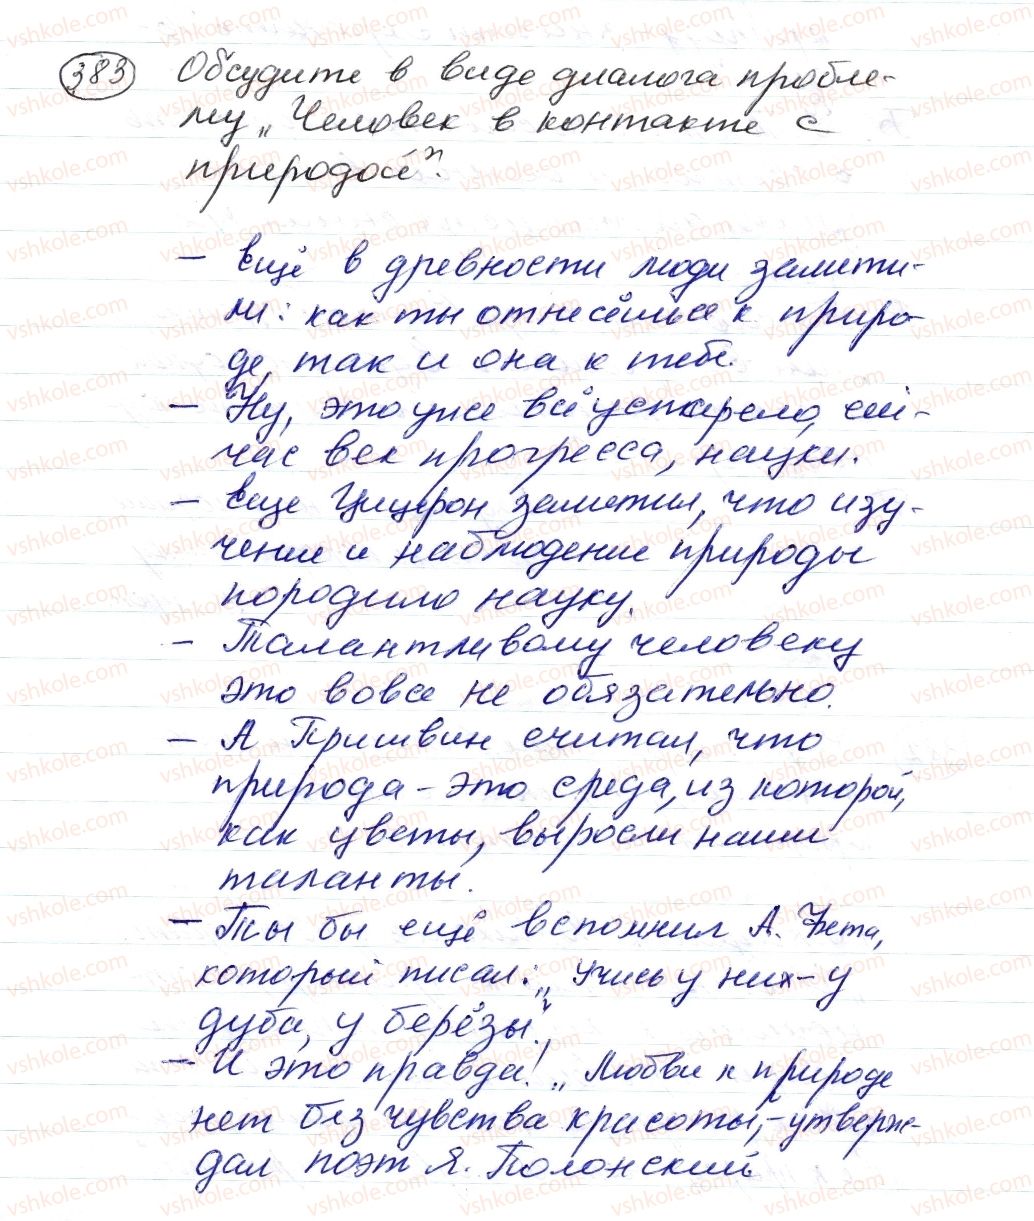 383 Обсудите в виде диалога пробле-
му „Человек в контакте с
природой".
– Ещё в древности люди замети-
ли: как ты отнесёшься к приро-
де, так и она к тебе.
– Ну, это уже всё устарело, сей-
час век прогресса, науки.
– Еще Цицерон заметил, что изу-
чение и наблюдение природы
породило науку.
– Талантливому человеку
это вовсе не обязательно.
– А Пришвин считал, что
природа – это среда, из которой,
как цветы, выросли наши
таланты.
– Ты бы ещё вспомнил А. Фета,
который писал: „Учись у них – у
дуба, у берёзы".
– И это правда! „Любви к природе
нет без чувства красоты", – утверж-
дал поэт Я. Полонский